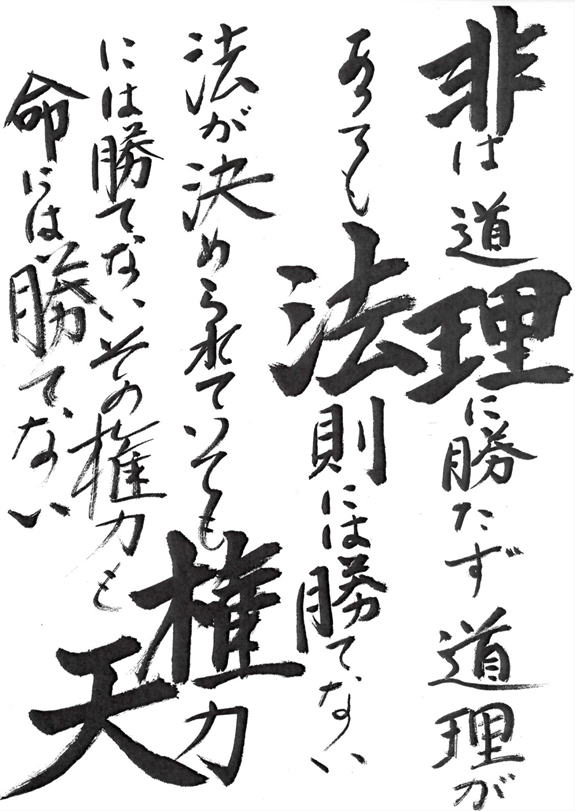 非は道理に勝たず道理が
あっても法則には勝てない
法が決められていても権力
には勝てないその権力も天
命には勝てない